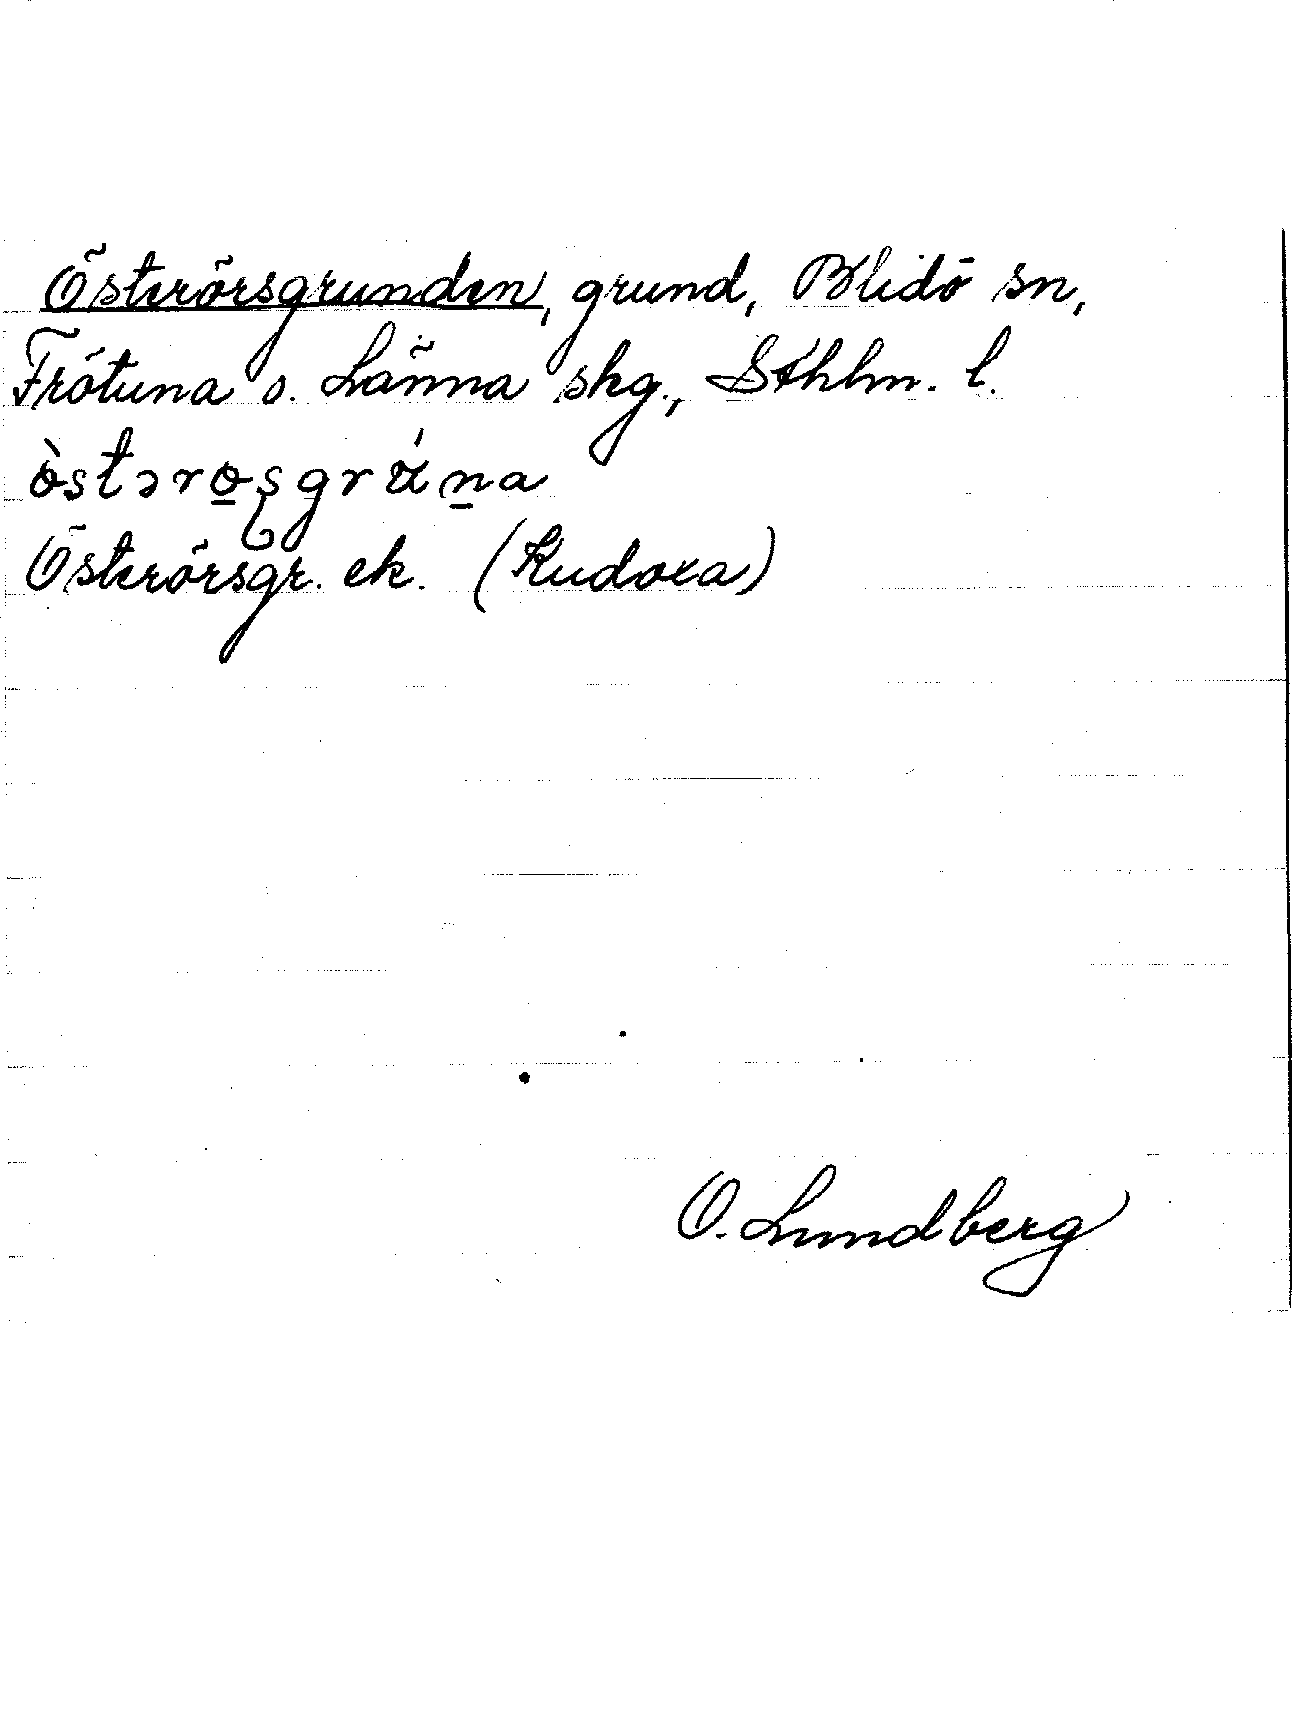 Österörsgrunden, grund, Blidö sn,
Frötuna o. Länna skg., Sthlm. l.
ò̀stərø̱ʂgrɯ́ṉa
Österörsgr. ek. (Rudoxa)
O. Lundberg